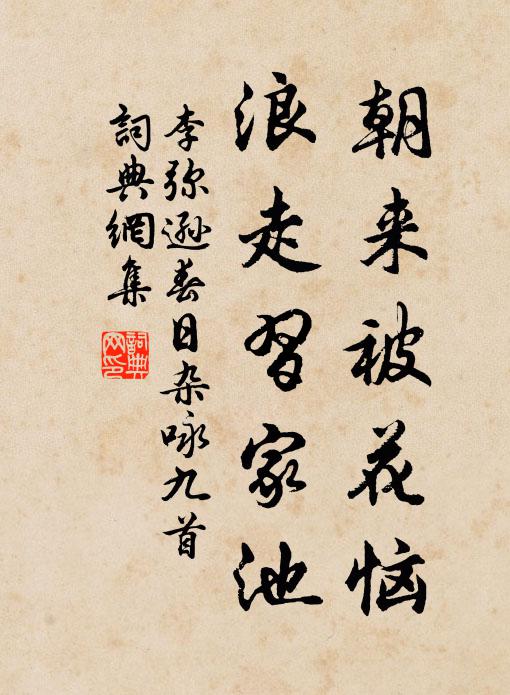 朝来被花恼
浪走習家池
李弥遜春日杂咏九首
詞典網集
詞典
网印